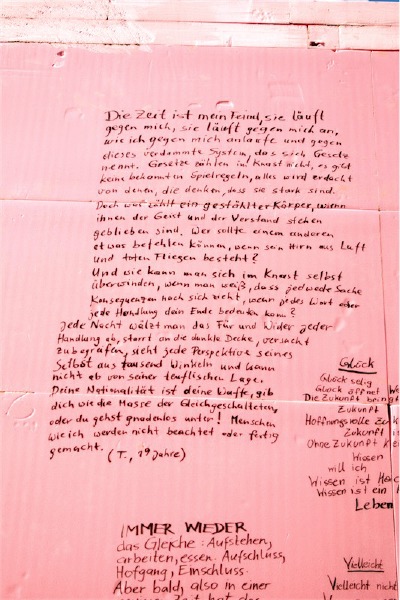 Die Zeit ist mein Feind, sie läuft
gegen mich, sie läuft gegen mich an,
wie ich gegen mich anlaufe und gegen
dieses verdammte System, das sich Gesetz
nennt. Gesetze zählen im Knast nicht, es gibt
keine bekannten Spielregeln, alles wird erdacht
von denen, die denken, dass sie stark sind.
Doch was zählt ein gestählter Körper, wenn
ihnen der Geist und der Verstand stehen
geblieben sind. Wer sollte einem anderen
etwas befehlen können, wenn sein Hirn aus Luft
und toten Fliegen besteht?
Und wie kann man sich im Knast selbst
überwinden, wenn man weiß, dass jedwede Sache
Konsequenzen nach sich zieht, wenn jedes Wort oder
jede Handlung dein Ende bedeuten kann?
Jede Nacht wälzt man das Für und Wider jeder
Handlung ab, starrt an die dunkle Decke, versucht
zu begreifen, sieht jede Perspektive seines
Selbst aus tausend Winkeln und kann
nicht ab von seiner teuflischen Lage.
Deine Nationalität ist deine Waffe, gib
dich wie die Masse der Gleichgeschalteten,
oder du gehst gnadenlos unter! Menschen
wie ich werden nicht beachtet oder fertig
gemacht. (T., 19 Jahre)
Glück
Glück selig
Glück öffnet
Die Zukunft bringt
Zukunft
Hoffnungsvolle
Zukunft
Ohne Zukunft
Wissen
will ich
Wissen ist
Wissen ist ein
Leben
IMMER WIEDER
das Gleiche: Aufstehen,
arbeiten, essen. Aufschluss,
Hofgang, Einschluss.
Aber bald, also in einer
Zeit hat das
Vielleicht
Vielleicht nicht